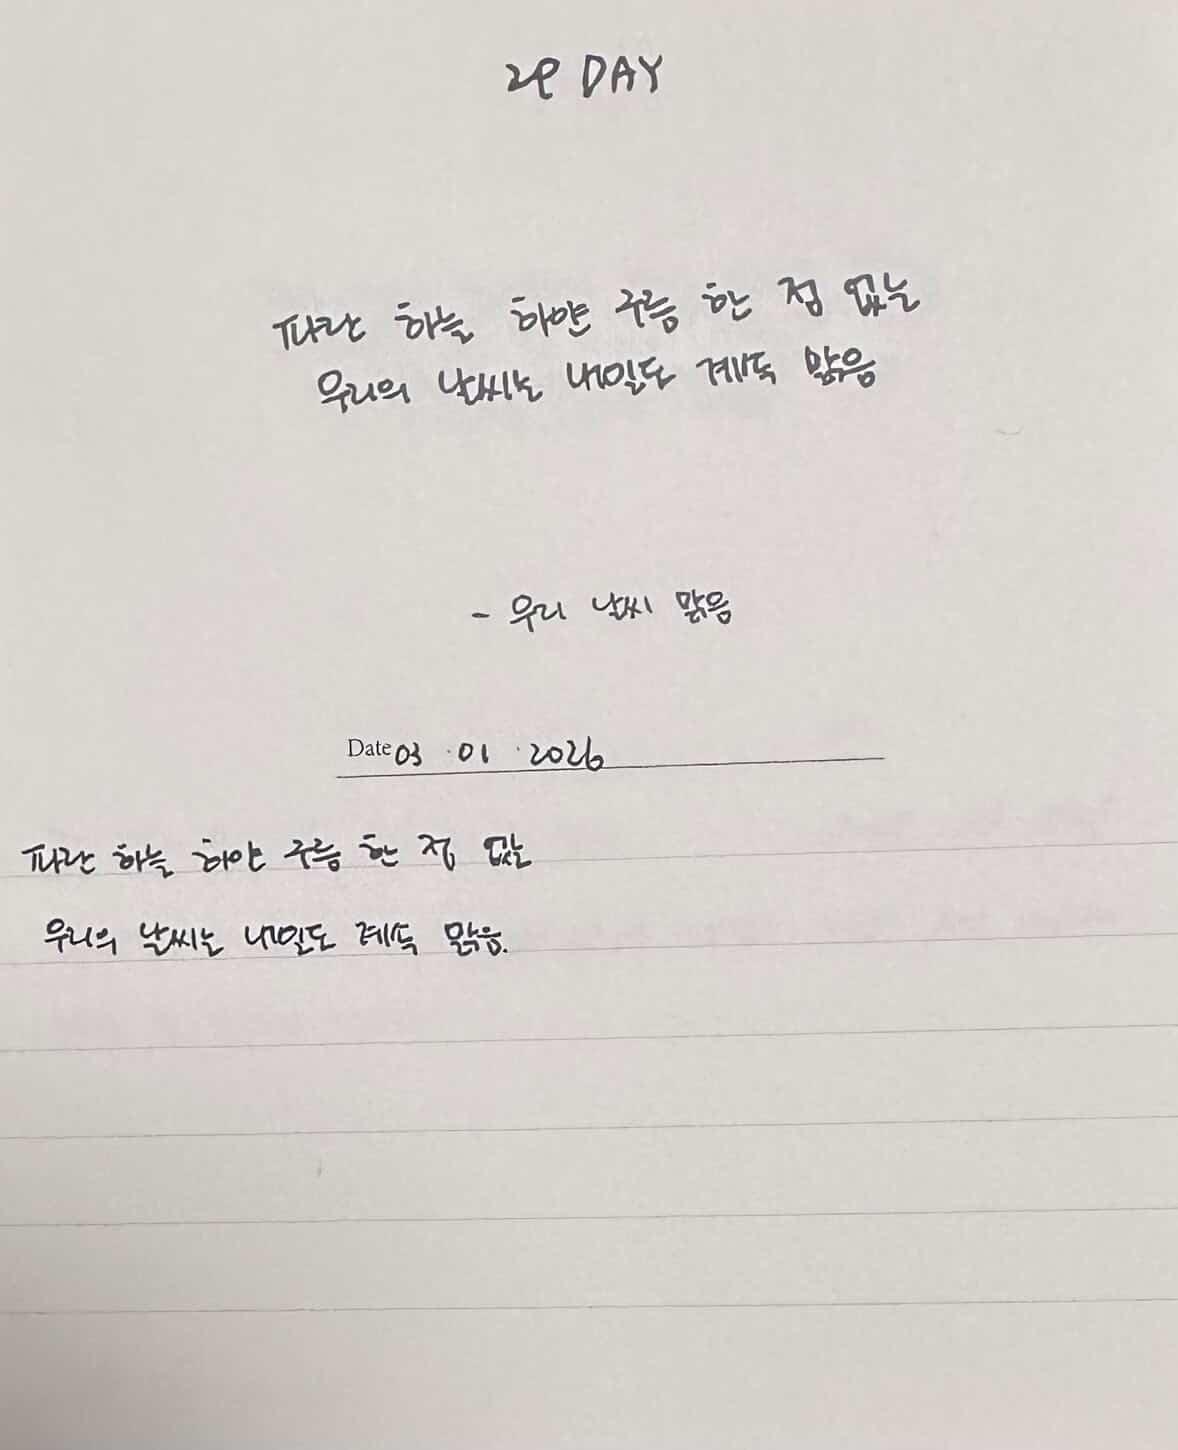 29 DAY
파란 하늘 하얀 구름 한 점 없는
우리의 날씨는 내일도 계속 맑음
- 우리 날씨 맑음
Date 03 · 01 · 2026
파란 하늘 하얀 구름 한 점 없는
우리의 날씨는 내일도 계속 맑음.